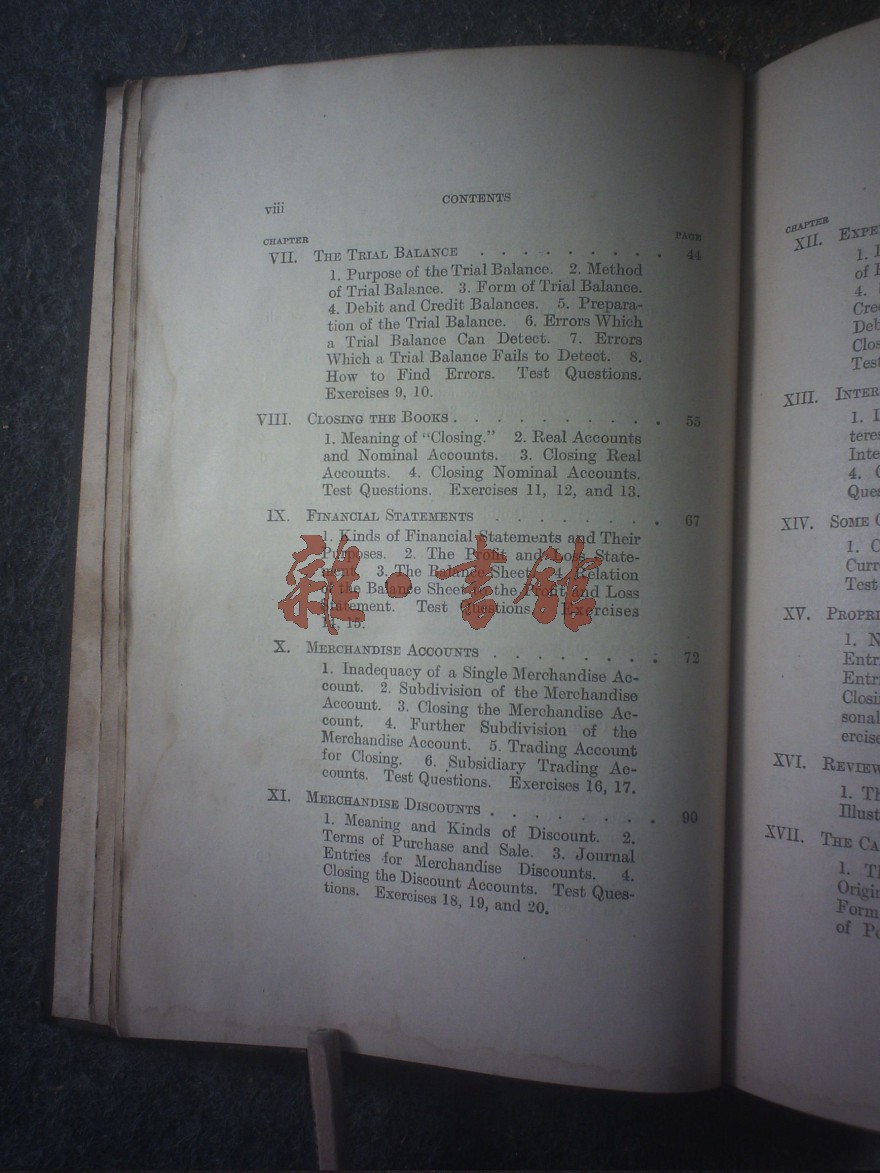 viii
CONTENTS
CHAPTER PAGE
VII. THE TRIAL BALANCE . . . . . . . . . . 44
1. Purpose of the Trial Balance. 2. Method
of Trial Balance. 3. Form of Trial Balance.
4. Debit and Credit Balances. 5. Prepara-
tion of the Trial Balance. 6. Errors Which
a Trial Balance Can Detect. 7. Errors
Which a Trial Balance Fails to Detect. 8.
How to Find Errors. Test Questions.
Exercises 9, 10.
VIII. CLOSING THE BOOKS . . . . . . . . . . 55
1. Meaning of “Closing.” 2. Real Accounts
and Nominal Accounts. 3. Closing Real
Accounts. 4. Closing Nominal Accounts.
Test Questions. Exercises 11, 12, and 13.
IX. FINANCIAL STATEMENTS . . . . . . . . 67
1. Kinds of Financial Statements and Their
Purposes. 2. The Profit and Loss State-
ment. 3. The Balance Sheet. 4. Relation
of the Balance Sheet to the Profit and Loss
Statement. Test Questions. Exercises
14, 15.
雜·書館
X. MERCHANDISE ACCOUNTS . . . . . . . . 72
1. Inadequacy of a Single Merchandise Ac-
count. 2. Subdivision of the Merchandise
Account. 3. Closing the Merchandise Ac-
count. 4. Further Subdivision of the
Merchandise Account. 5. Trading Account
for Closing. 6. Subsidiary Trading Ac-
counts. Test Questions. Exercises 16, 17.
XI. MERCHANDISE DISCOUNTS . . . . . . . . 90
1. Meaning and Kinds of Discount. 2.
Terms of Purchase and Sale. 3. Journal
Entries for Merchandise Discounts. 4.
Closing the Discount Accounts. Test Ques-
tions. Exercises 18, 19, and 20.
CHAPTER
XII.
1.
of
4.
XIII.
1.
4.
XIV. SOME
1.
Test
XV.
1.
XVI. REVIEW
1.
XVII. THE
1.
of